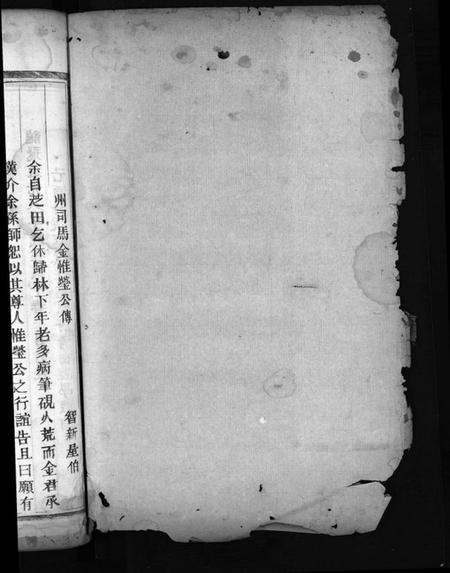 州司馬金惟瑩公傳
智新屋伯
余自芝田乞休歸林下年老多病筆硯久荒而金君承
漢介余孫師恕以其尊人惟瑩公之行誼告且曰願有